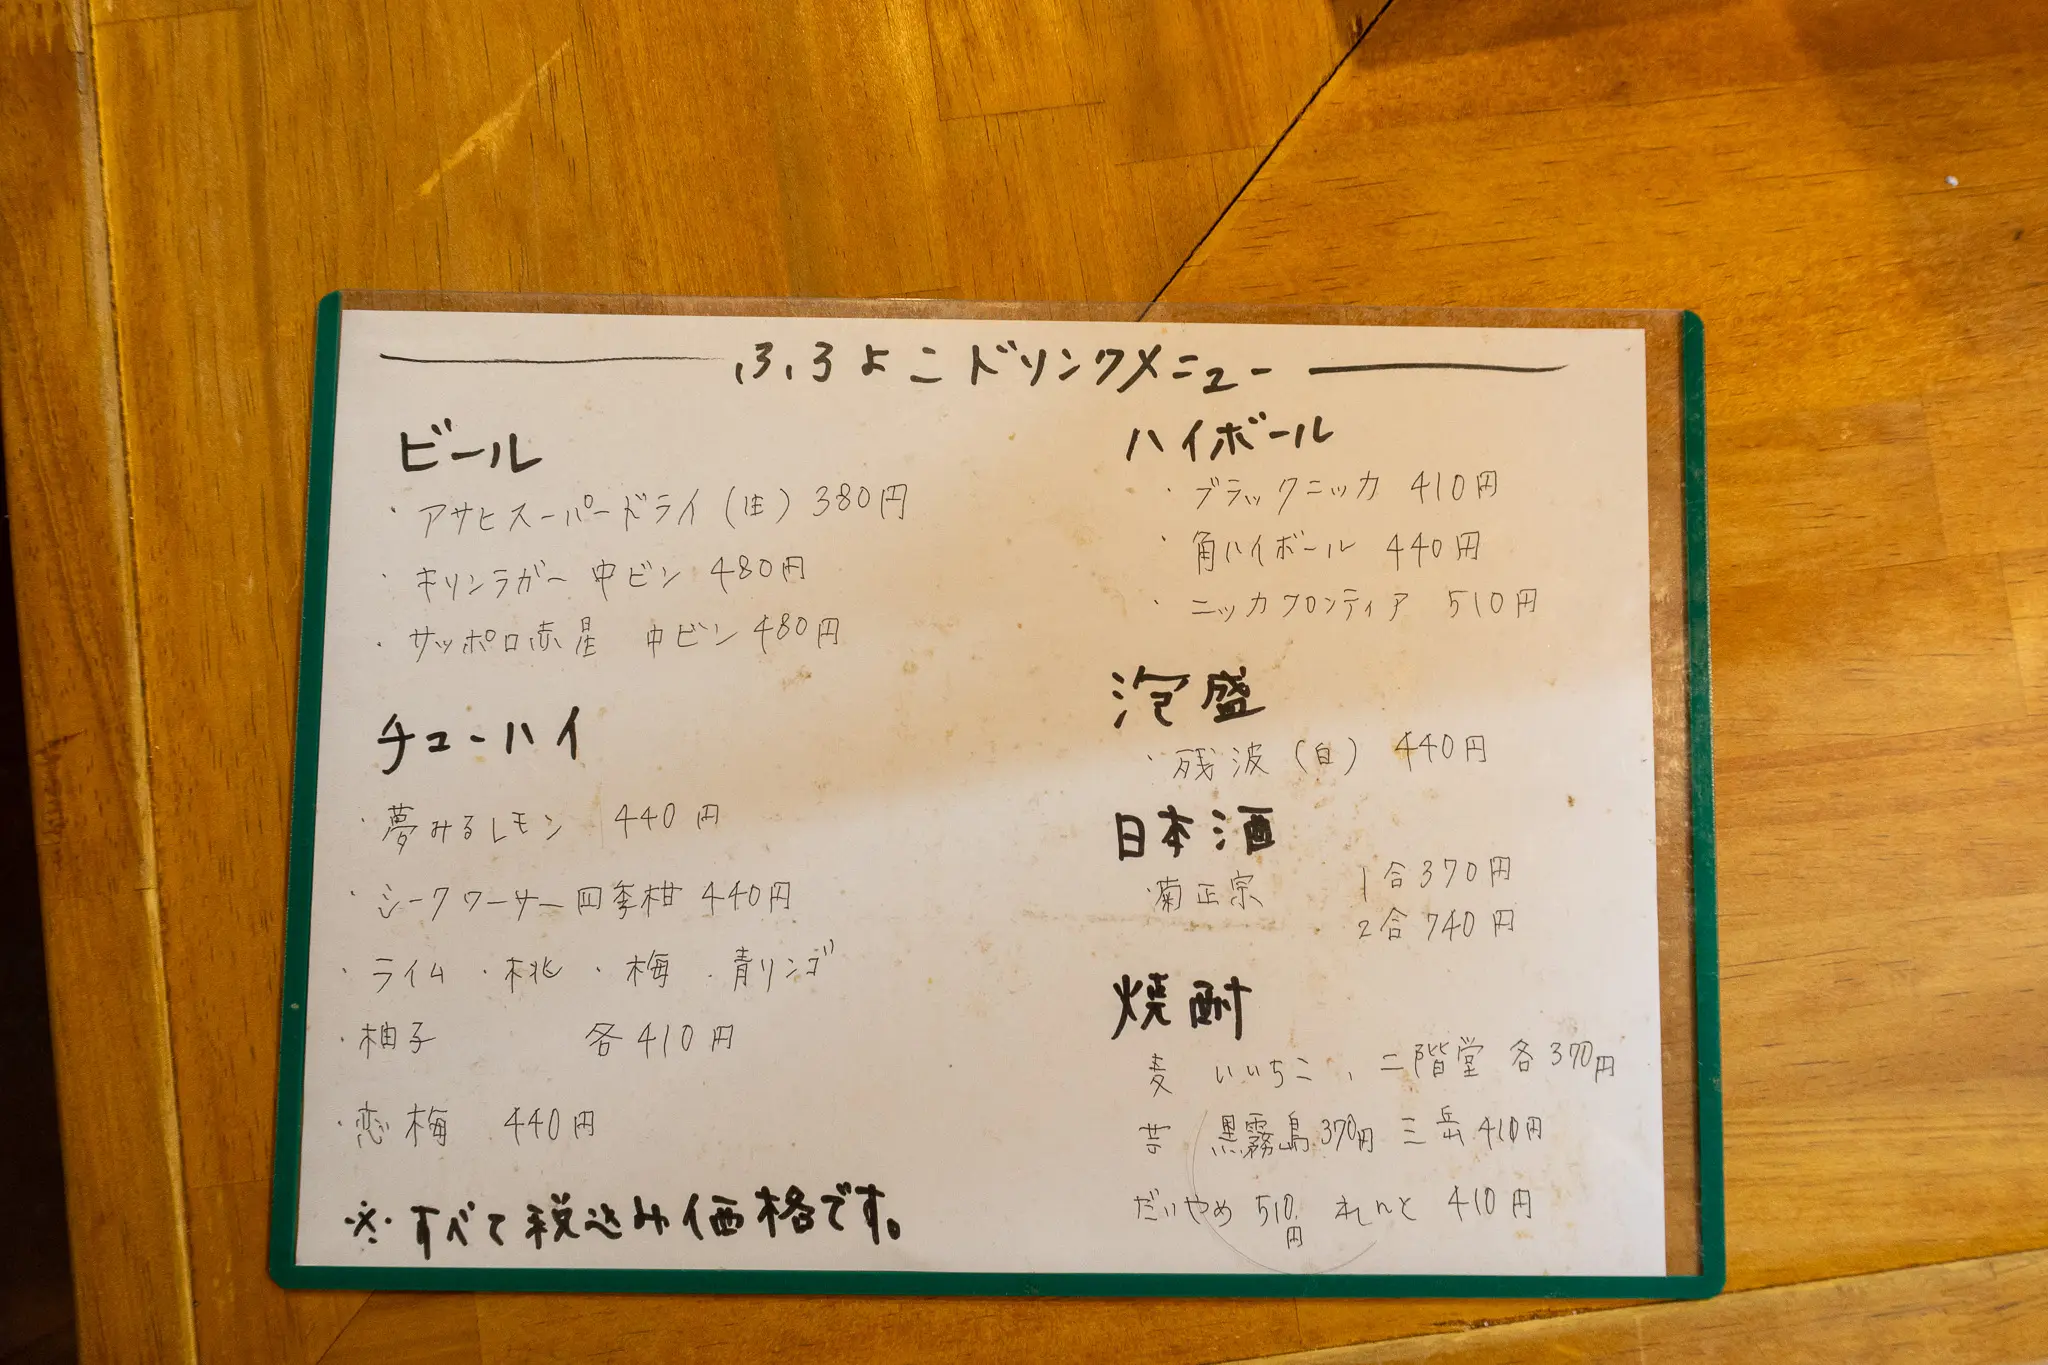 ふろよこドリンクメニュー
ビール
・アサヒスーパードライ(生) 380円
・キリンラガー 中ビン 480円
・サッポロ赤星 中ビン 480円
チューハイ
・夢みるレモン 440円
・シークワーサー四季柑 440円
・ライム ・桃 ・梅 ・青リンゴ
・柚子 各410円
・恋梅 440円
※すべて税込み価格です。
ハイボール
・ブラックニッカ 410円
・角ハイボール 440円
・ニッカフロンティア 510円
泡盛
・残波(白) 440円
日本酒
・菊正宗 1合370円
2合740円
焼酎
麦 いいちこ、二階堂 各370円
芋 黒霧島370円 三岳410円
だいやめ 510円 れんと 410円